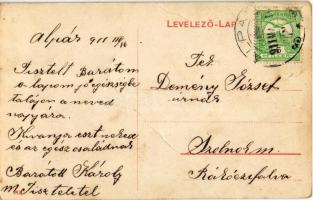 LEVELEZŐ-LAP
Alpár 911 III/16
Tisztelt Barátom
a lapom jó egésségbe
talájon a neved
napjára.
Kivánja ezt neked
és az egész családnak
Barátod Károly
M Tisztelettel
Tek.
Demény József
urnak
Szolnok m.
Rákóczifalva